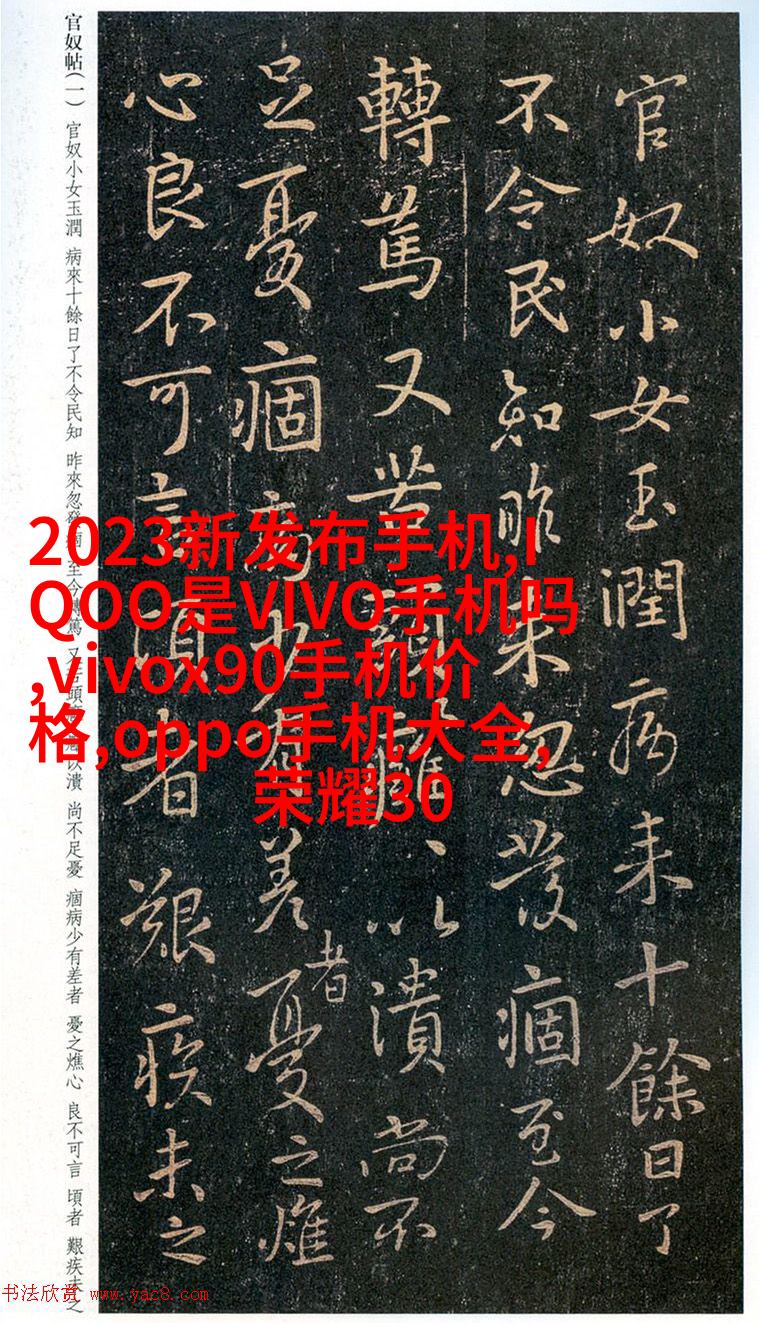 官奴小女玉潤病来十餘日了
不令民知昨来忽發痼至今
轉篤又苦頭癰、以潰尚不
足憂痼病少有差者憂之燋
心良不可言頃者艱疾未之
官奴帖(一) 官奴小女玉潤 病來十餘日了不令民知 昨來忽發痼 至今轉篤 又苦頭癰 以潰 尚不足憂 痼病少有差者 憂之燋心 良不可言 頃者 艱疾未之
2023新发布手机,I
QOO是VIVO手机吗
,vivox90手机价
格,oppo手机大全,
荣耀30
书法欣赏 www.yac8.com